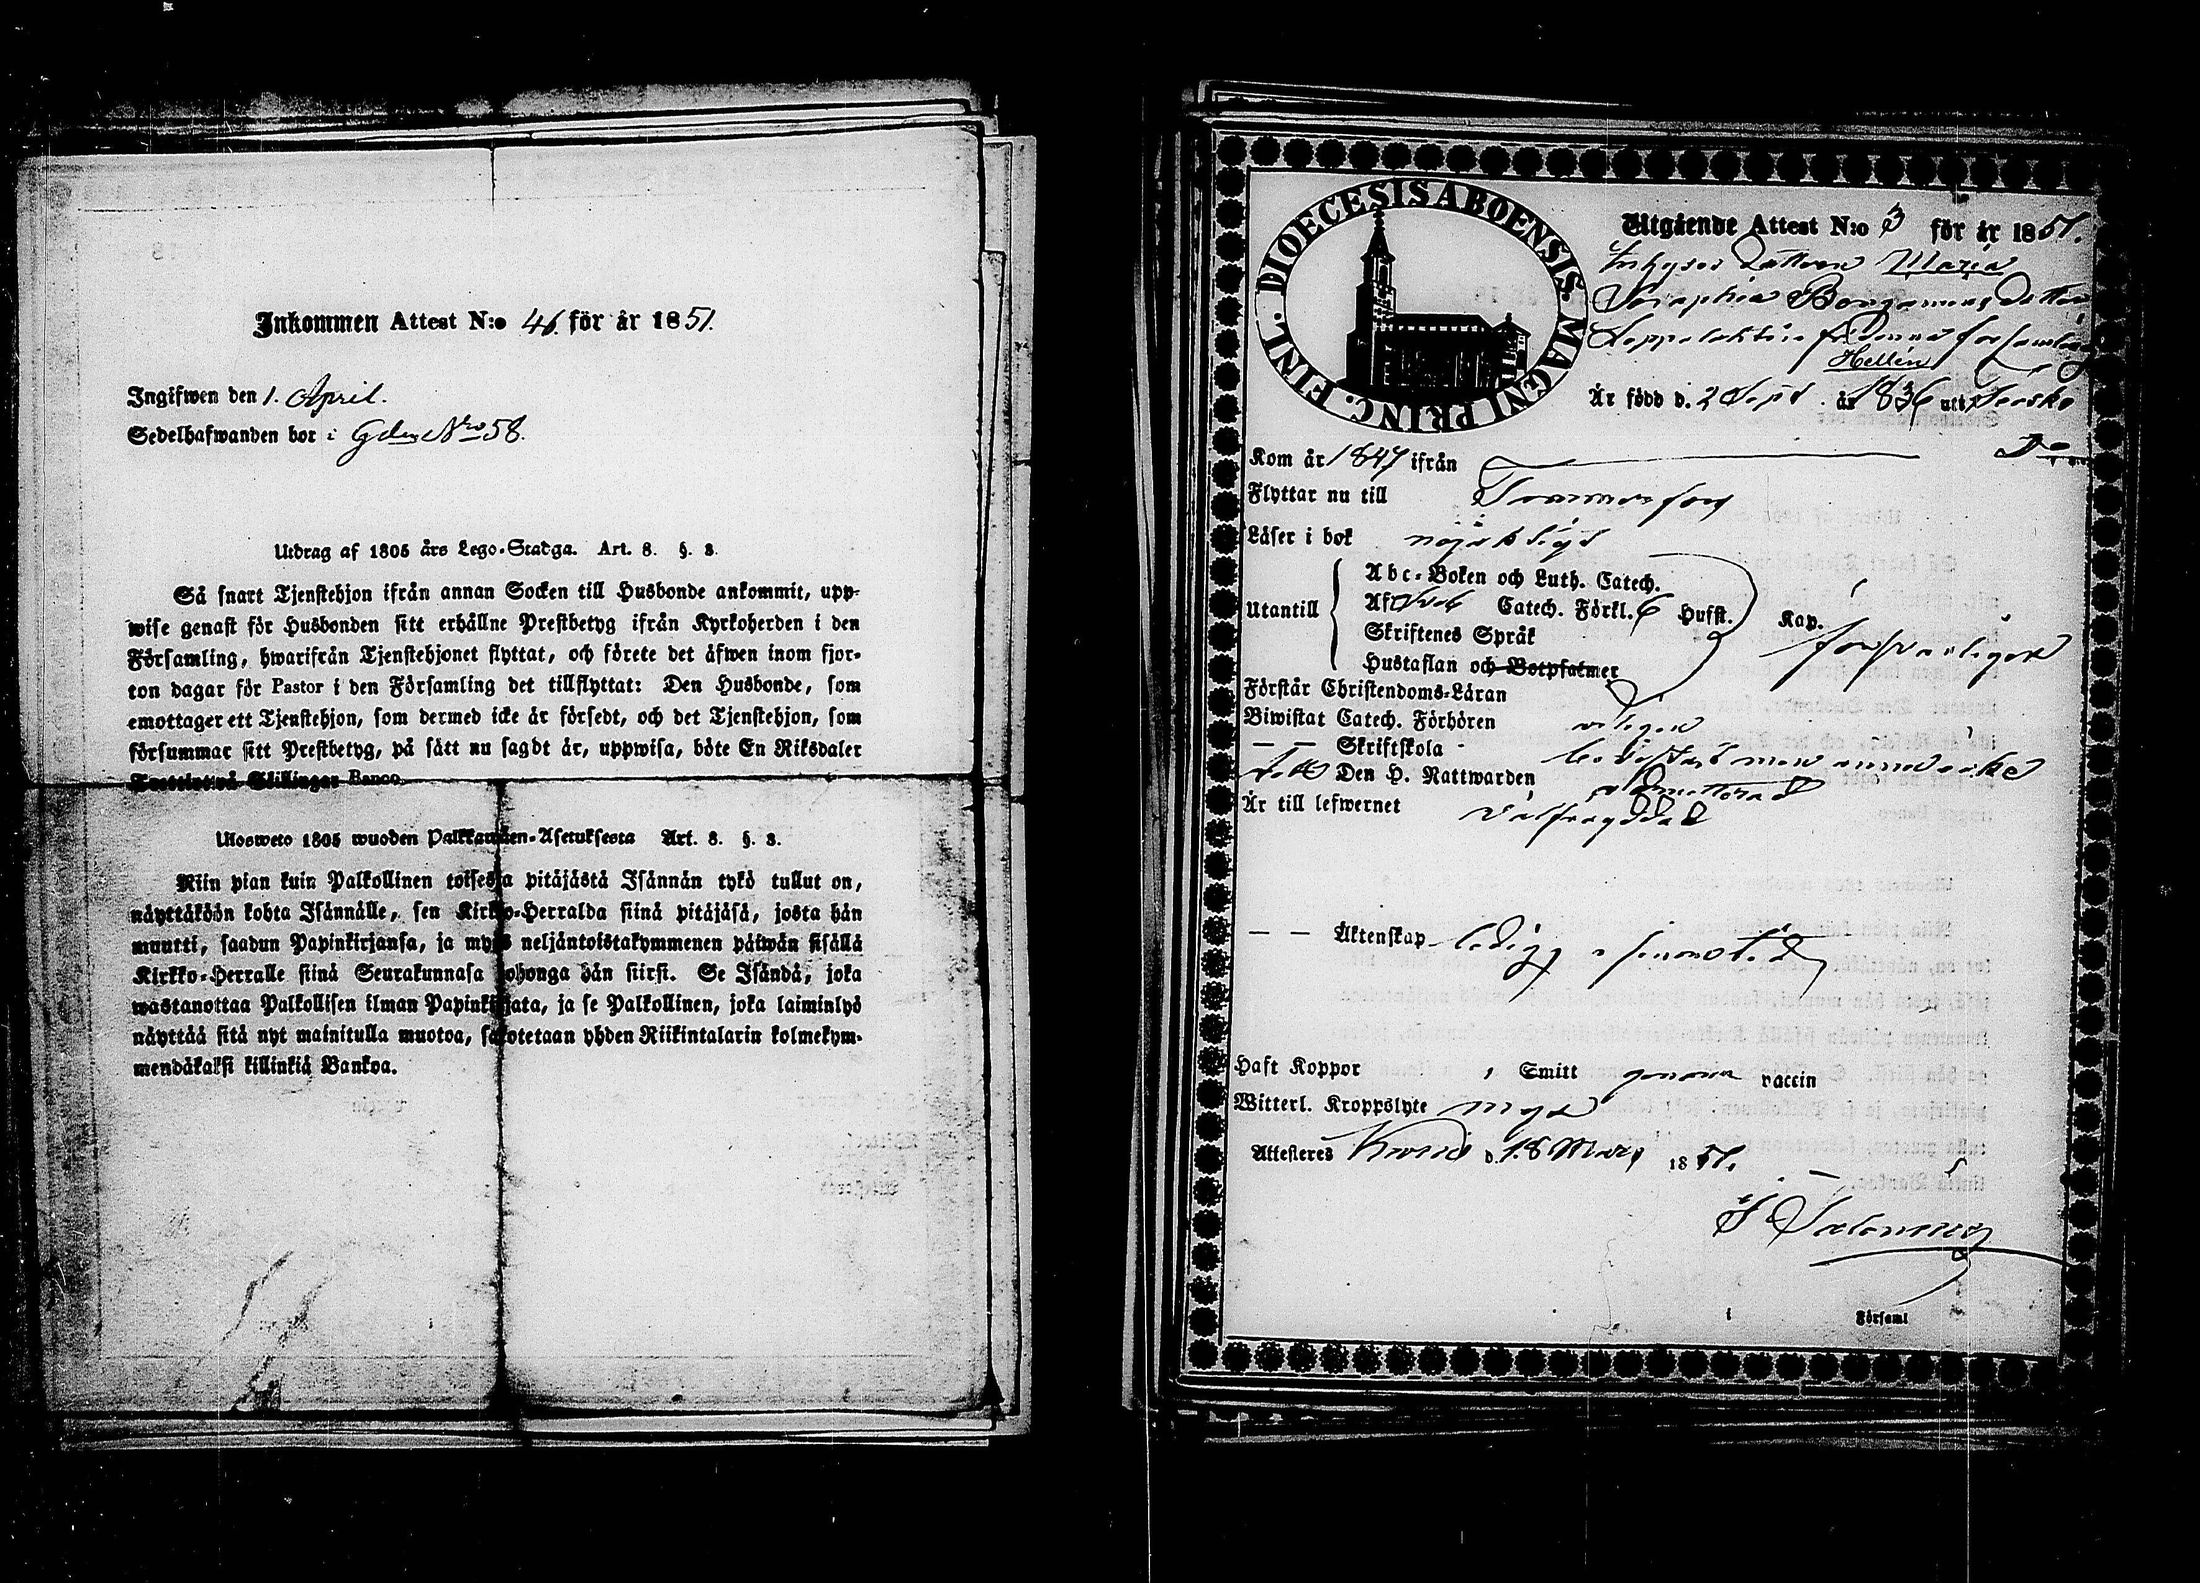 Inkommen Attest N:o 46. för år 1851.
Ingifwen den 1. April.
Sedelhafwanden bor i Gden Nro 58.
Utdrag af 1805 års Lego-Stadga. Art. 8. §. 8.
Så snart Tjenstehjon ifrån annan Socken till Husbonde ankommit, upp-
wise genast för Husbonden sitt erhållne Prestbetyg ifrån Kyrkoherden i den
Församling, hwarifrån Tjenstehjonet flyttat, och förete det äfwen inom fjor-
ton dagar för Pastor i den Församling det tillflyttat: Den Husbonde, som
emottager ett Tjenstehjon, som dermed icke är försedt, och det Tjenstehjon, som
försummar sitt Prestbetyg, på sätt nu sagdt är, uppwisa, böte En Riksdaler
Trettiotwå Skillingar Banco.
Ulosweto 1805 wuoden Palkkawäen-Asetuksesta Art. 8. §. 8.
Niin pian kuin Palkollinen toisesta pitäjästä Isännän tykö tullut on,
näyttäköön kohta Isännälle, sen Kirkko-Herralda siinä pitäjäsä, josta hän
muutti, saadun Papinkirjansa, ja myös neljäntoistakymmenen päiwän sisällä
Kirkko-Herralle siinä Seurakunnasa johonga hän siirsi. Se Isändä, joka
wastanottaa Palkollisen ilman Papinkirjata, ja se Palkollinen, joka laiminlyö
näyttää sitä nyt mainitulla muotoa, sakotetaan yhden Riikintalarin kolmekym-
mendäkaksi killinkiä Bankoa.
DIOECESIS ABOENSIS. MAGNI PRINC. FINL.
Utgående Attest N:o 3 för år 1851.
Inhyses Dottren Maria
Seraphia Bengamins dotter
från denna församling
Hellén
Är född d. 2 Sept. år 1836 uti
Do
Kom år 1847 ifrån
Flyttar nu till Tammerfors
Läser i bok nöjaktigt
Utantill
Abc-Boken och Luth. Catech.
Af Sveb Catech. Förkl. 6 Hufst. Kap.
Skriftenes Språk
försvarligen
Hustaflan och Botpsalmer
Förstår Christendoms-Läran
Biwistat Catech. Förhören
— — Skriftskola bevistat men ännu icke
Den H. Nattwarden admitterad
Är till lefwernet välfrägdad
— — Äktenskap ledig
Haft Koppor , Smitt genom vaccin
Witterl. Kroppslyte inga
Attesteras d. 18 Mars 1851.
i Församl